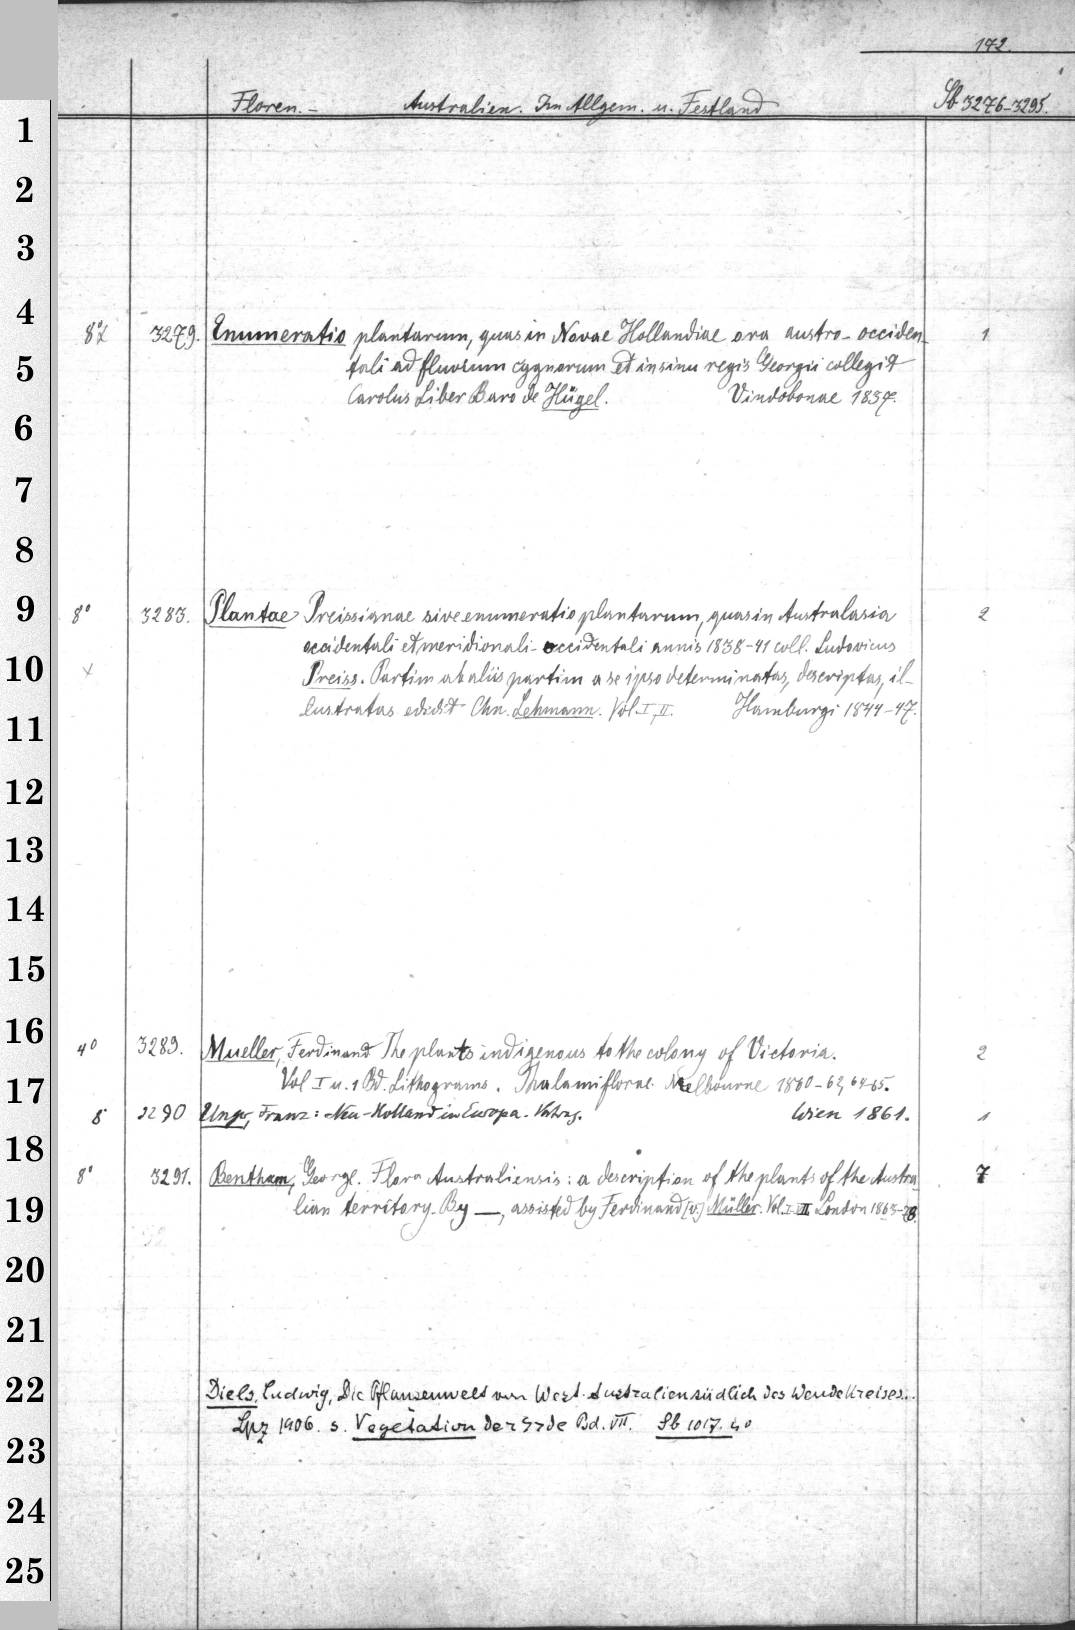 172.
Floren. - Australien. Im Allgem. u. Festland Sb 3276-3295.
1
2
3
4
8° x 3279. Enumeratio plantarum, quas in Novae Hollandiae ora austro-occiden- 1
5
tali ad fluvium cygnorum et in sinu regis Georgii collegit
Carolus Liber Baro de Hügel. Vindobonae 1837.
6
7
8
9
8° 3283. Plantae Preissianae sive enumeratio plantarum, quas in Australasia 2
occidentali et meridionali-occidentali annis 1838-41 coll. Ludovicus
10
x Preiss. Partim ab aliis partim a se ipso determinatas, descriptas, il-
lustratas edidit Chn. Lehmann. Vol. I, II. Hamburgi 1844-47.
11
12
13
14
15
16
4° 3289. Mueller, Ferdinand The plants indigenous to the colony of Victoria. 2
17
Vol I u. 1 Bd. Lithograms. Thalamiflorae. Melbourne 1860-62, 64-65.
8 3290 Unger, Franz: Neu-Holland in Europa. Vortrag. Wien 1861. 1
18
8° 3291. Bentham, George. Flora Australiensis: a description of the plants of the Austra- 7
19
lian territory. By —, assisted by Ferdinand [v.] Müller. Vol. I-VII London 1863-78.
20
21
22
Diels, Ludwig, Die Pflanzenwelt von West-Australien südlich des Wendekreises..
Lpz 1906. s. Vegetation der Erde Bd. VII. Sb 1017. 4°
23
24
25